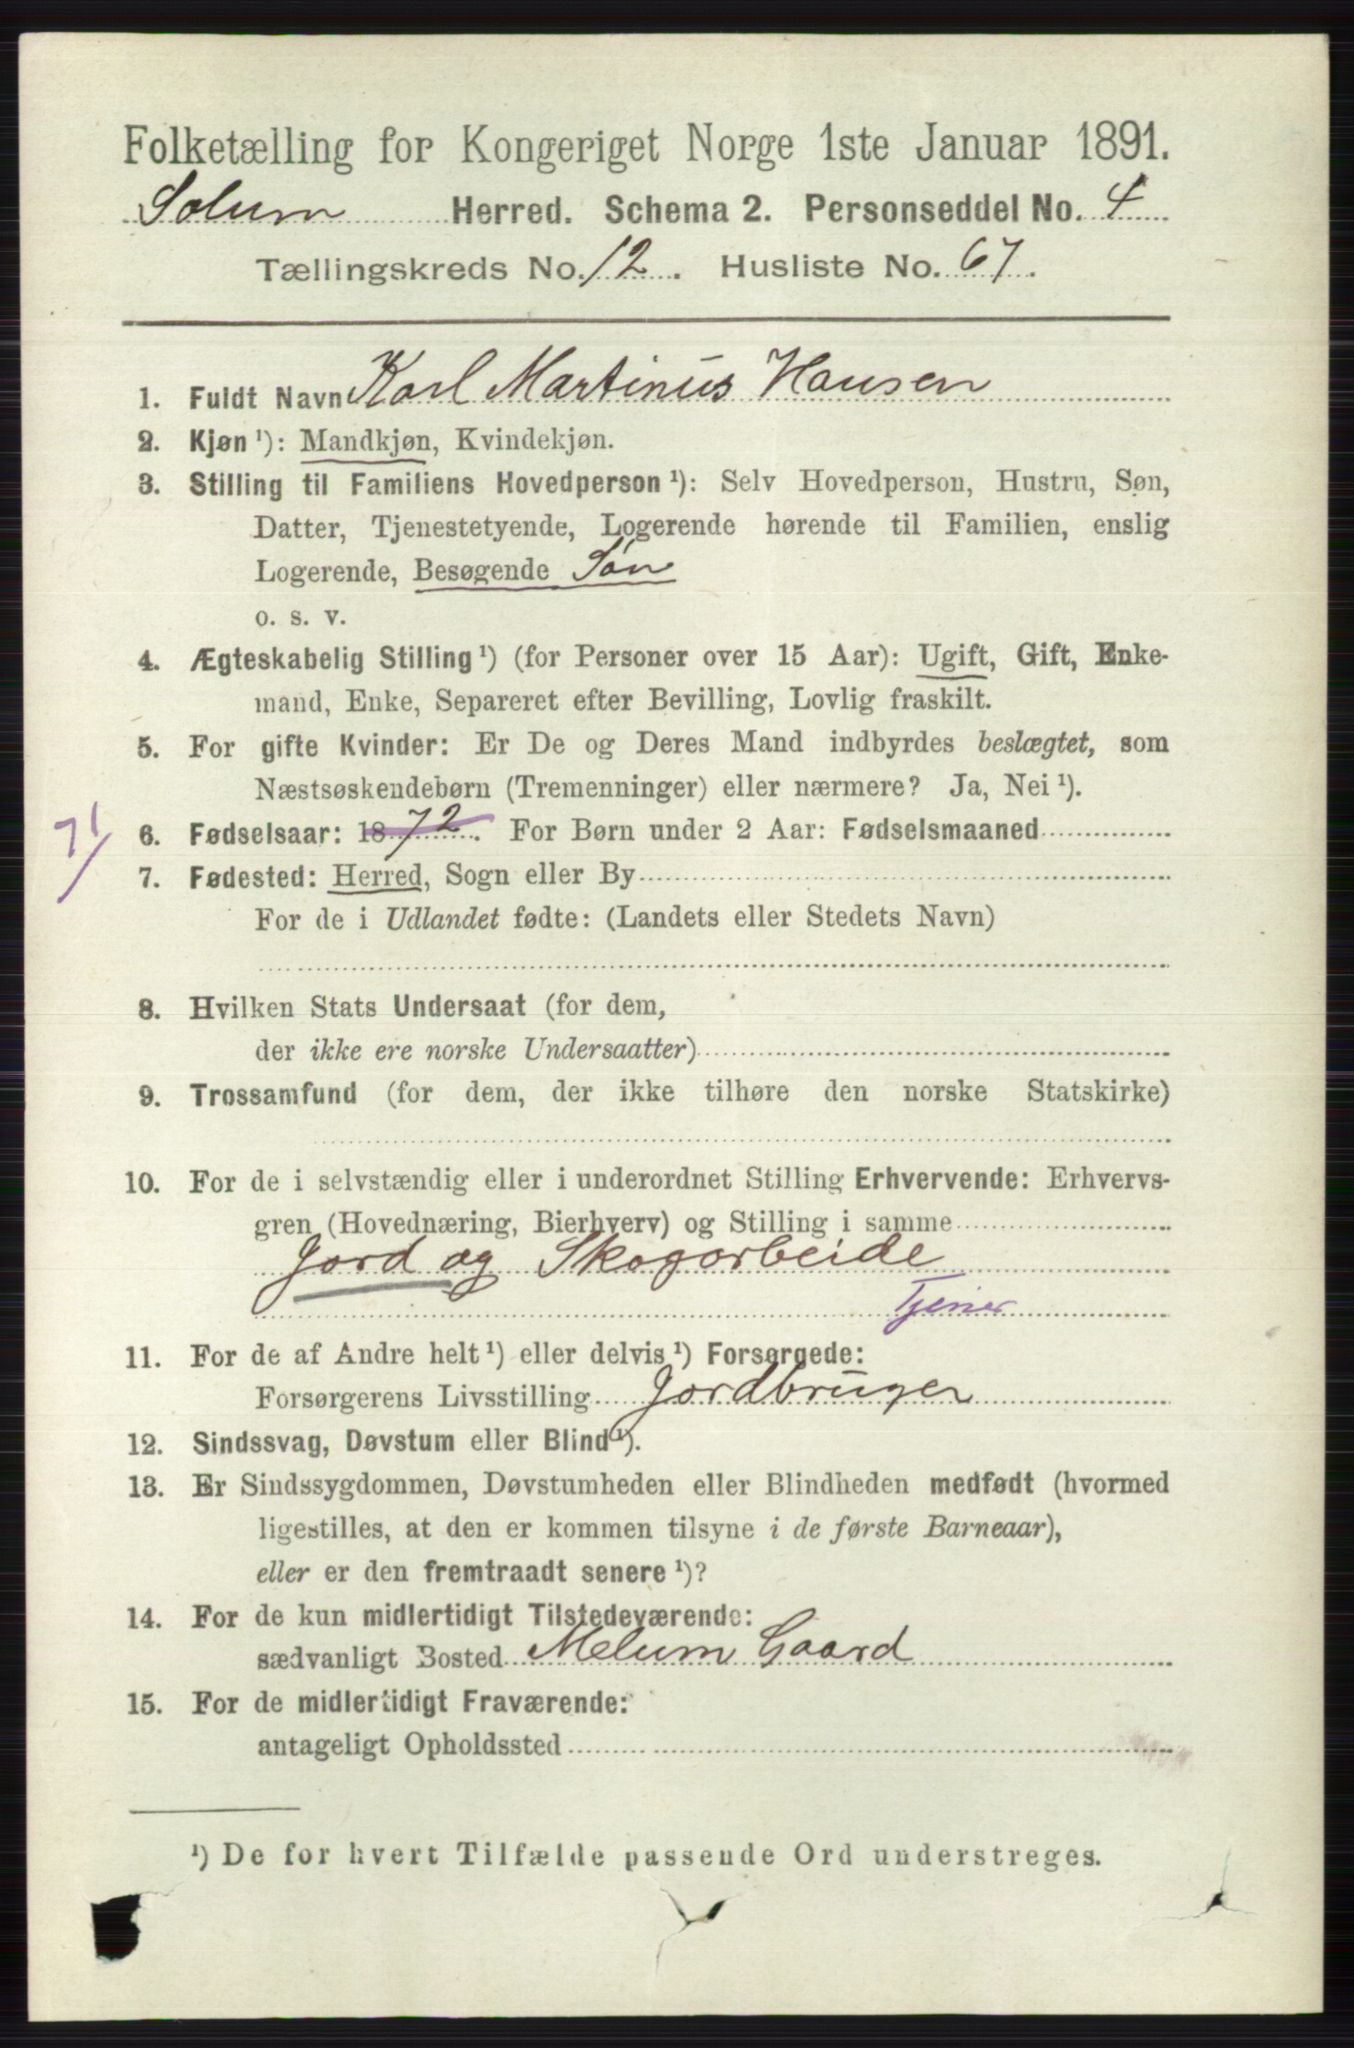 Folketælling for Kongeriget Norge 1ste Januar 1891.
Solum Herred. Schema 2. Personseddel No. 4
Tællingskreds No. 12. Husliste No. 67.
1. Fuldt Navn Karl Martinus Hansen
2. Kjøn ¹): Mandkjøn, Kvindekjøn.
3. Stilling til Familiens Hovedperson ¹): Selv Hovedperson, Hustru, Søn,
Datter, Tjenestetyende, Logerende hørende til Familien, enslig
Logerende, Besøgende Søn
o. s. v.
4. Ægteskabelig Stilling ¹) (for Personer over 15 Aar): Ugift, Gift, Enke-
mand, Enke, Separeret efter Bevilling, Lovlig fraskilt.
5. For gifte Kvinder: Er De og Deres Mand indbyrdes beslægtet, som
Næstsøskendebørn (Tremenninger) eller nærmere? Ja, Nei ¹).
71/ 6. Fødselsaar: 1872. For Børn under 2 Aar: Fødselsmaaned
7. Fødested: Herred, Sogn eller By
For de i Udlandet fødte: (Landets eller Stedets Navn)
8. Hvilken Stats Undersaat (for dem,
der ikke ere norske Undersaatter)
9. Trossamfund (for dem, der ikke tilhøre den norske Statskirke)
10. For de i selvstændig eller i underordnet Stilling Erhvervende: Erhvervs-
gren (Hovednæring, Bierhverv) og Stilling i samme
Jord og Skogarbeide
Tjener
11. For de af Andre helt ¹) eller delvis ¹) Forsørgede:
Forsørgerens Livsstilling Jordbruger
12. Sindssvag, Døvstum eller Blind ¹).
13. Er Sindssygdommen, Døvstumheden eller Blindheden medfødt (hvormed
ligestilles, at den er kommen tilsyne i de første Barneaar),
eller er den fremtraadt senere ¹)?
14. For de kun midlertidigt Tilstedeværende:
sædvanligt Bosted Melum Gaard
15. For de midlertidigt Fraværende:
antageligt Opholdssted
¹) De for hvert Tilfælde passende Ord understreges.